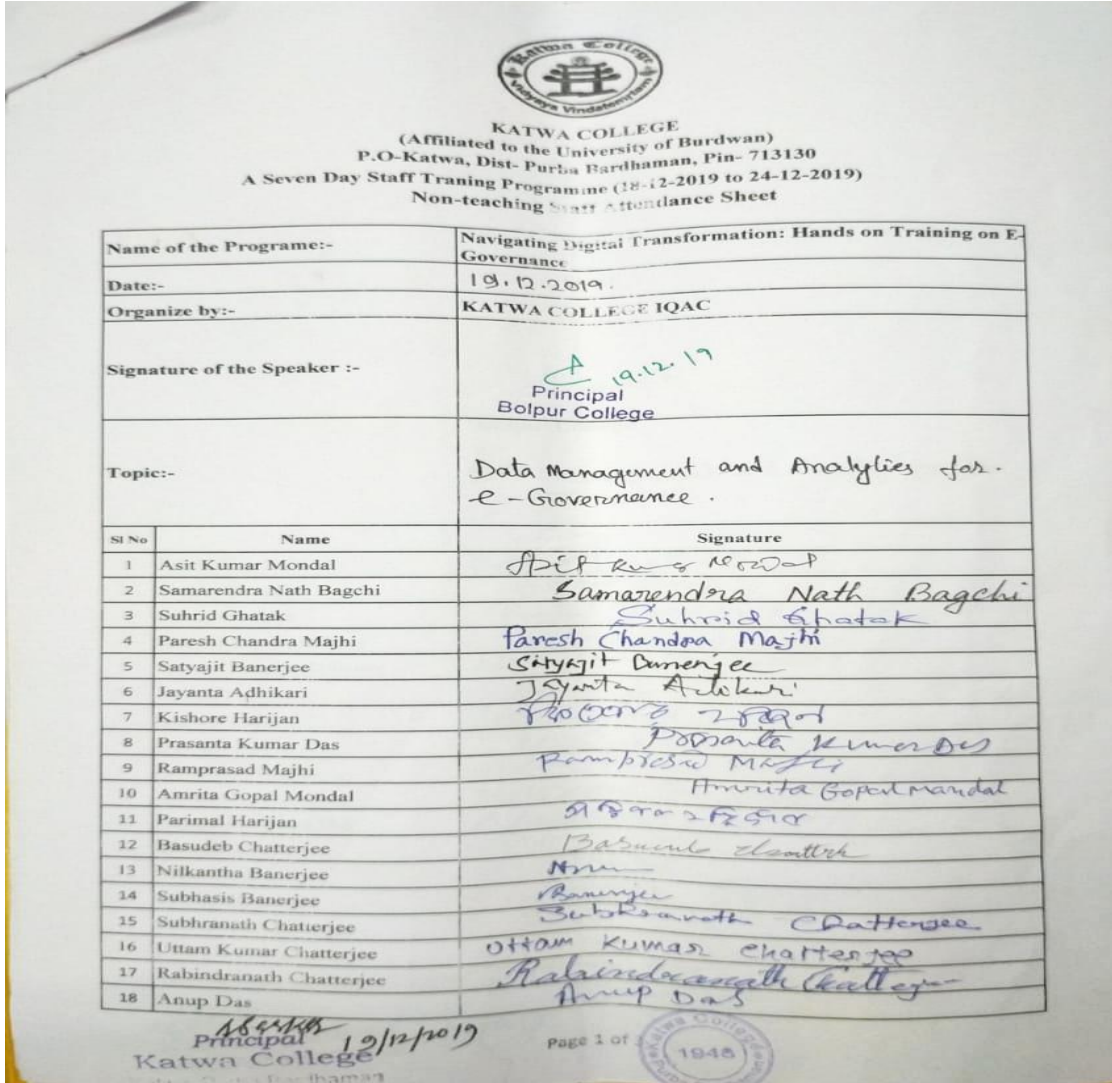 Katwa College
Vidyaya Vindatemritam
KATWA COLLEGE
(Affiliated to the University of Burdwan)
P.O-Katwa, Dist- Purba Bardhaman, Pin- 713130
A Seven Day Staff Traning Programme (18-12-2019 to 24-12-2019)
Non-teaching Staff Attendance Sheet
Name of the Programe:- Navigating Digital Transformation: Hands on Training on E-
Governance
Date:- 19.12.2019.
Organize by:- KATWA COLLEGE IQAC
Signature of the Speaker :- 19.12.19
Principal
Bolpur College
Topic:- Data Management and Analytics for.
e-Governance.
Sl No Name Signature
1 Asit Kumar Mondal
2 Samarendra Nath Bagchi Samarendra Nath Bagchi
3 Suhrid Ghatak Suhrid Ghatak
4 Paresh Chandra Majhi Paresh Chandra Majhi
5 Satyajit Banerjee Satyajit Banerjee
6 Jayanta Adhikari Jayanta
7 Kishore Harijan
8 Prasanta Kumar Das Prosanta Kumar Das
9 Ramprasad Majhi Ramprasad Majhi
10 Amrita Gopal Mondal Amrita Gopal Mandal
11 Parimal Harijan
12 Basudeb Chatterjee
13 Nilkantha Banerjee
14 Subhasis Banerjee Banerjee
15 Subhranath Chatterjee Subhranath Chatterjee
16 Uttam Kumar Chatterjee Uttam Kumar Chatterjee
17 Rabindranath Chatterjee Rabindranath Chatterjee
18 Anup Das Anup Das
19/12/2019
Principal
Katwa College
Page 1 of
Katwa College
1948